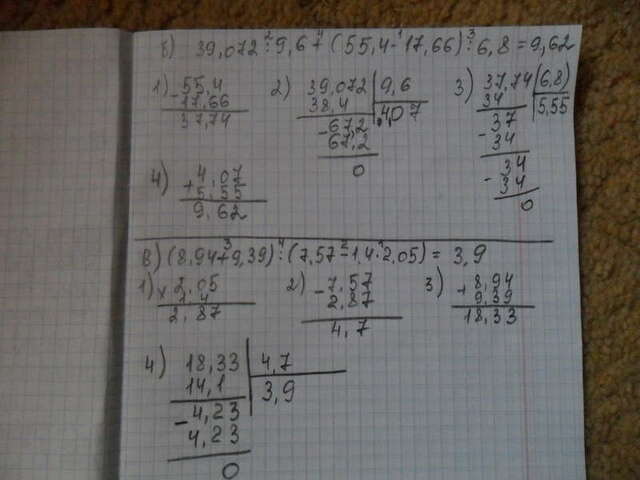 б) 39,072 : 9,6 + (55,4 - 17,66) : 6,8 = 9,62
1) - 55,4
17,66
37,74
2) 39,072 | 9,6
38,4 4,07
- 67,2
67,2
0
3) 37,74 (6,8)
34 5,55
37
- 34
34
- 34
0
4) + 4,07
5,55
9,62
в) (8,94 + 9,39) : (7,57 - 1,4 · 2,05) = 3,9
1) × 2,05
1,4
2,87
2) - 7,57
2,87
4,7
3) + 8,94
9,39
18,33
4) 18,33 | 4,7
14,1 3,9
- 4,23
4,23
0